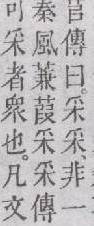 苢傳曰。采采、非一
秦風蒹葭采采傳
可采者衆也。凡文